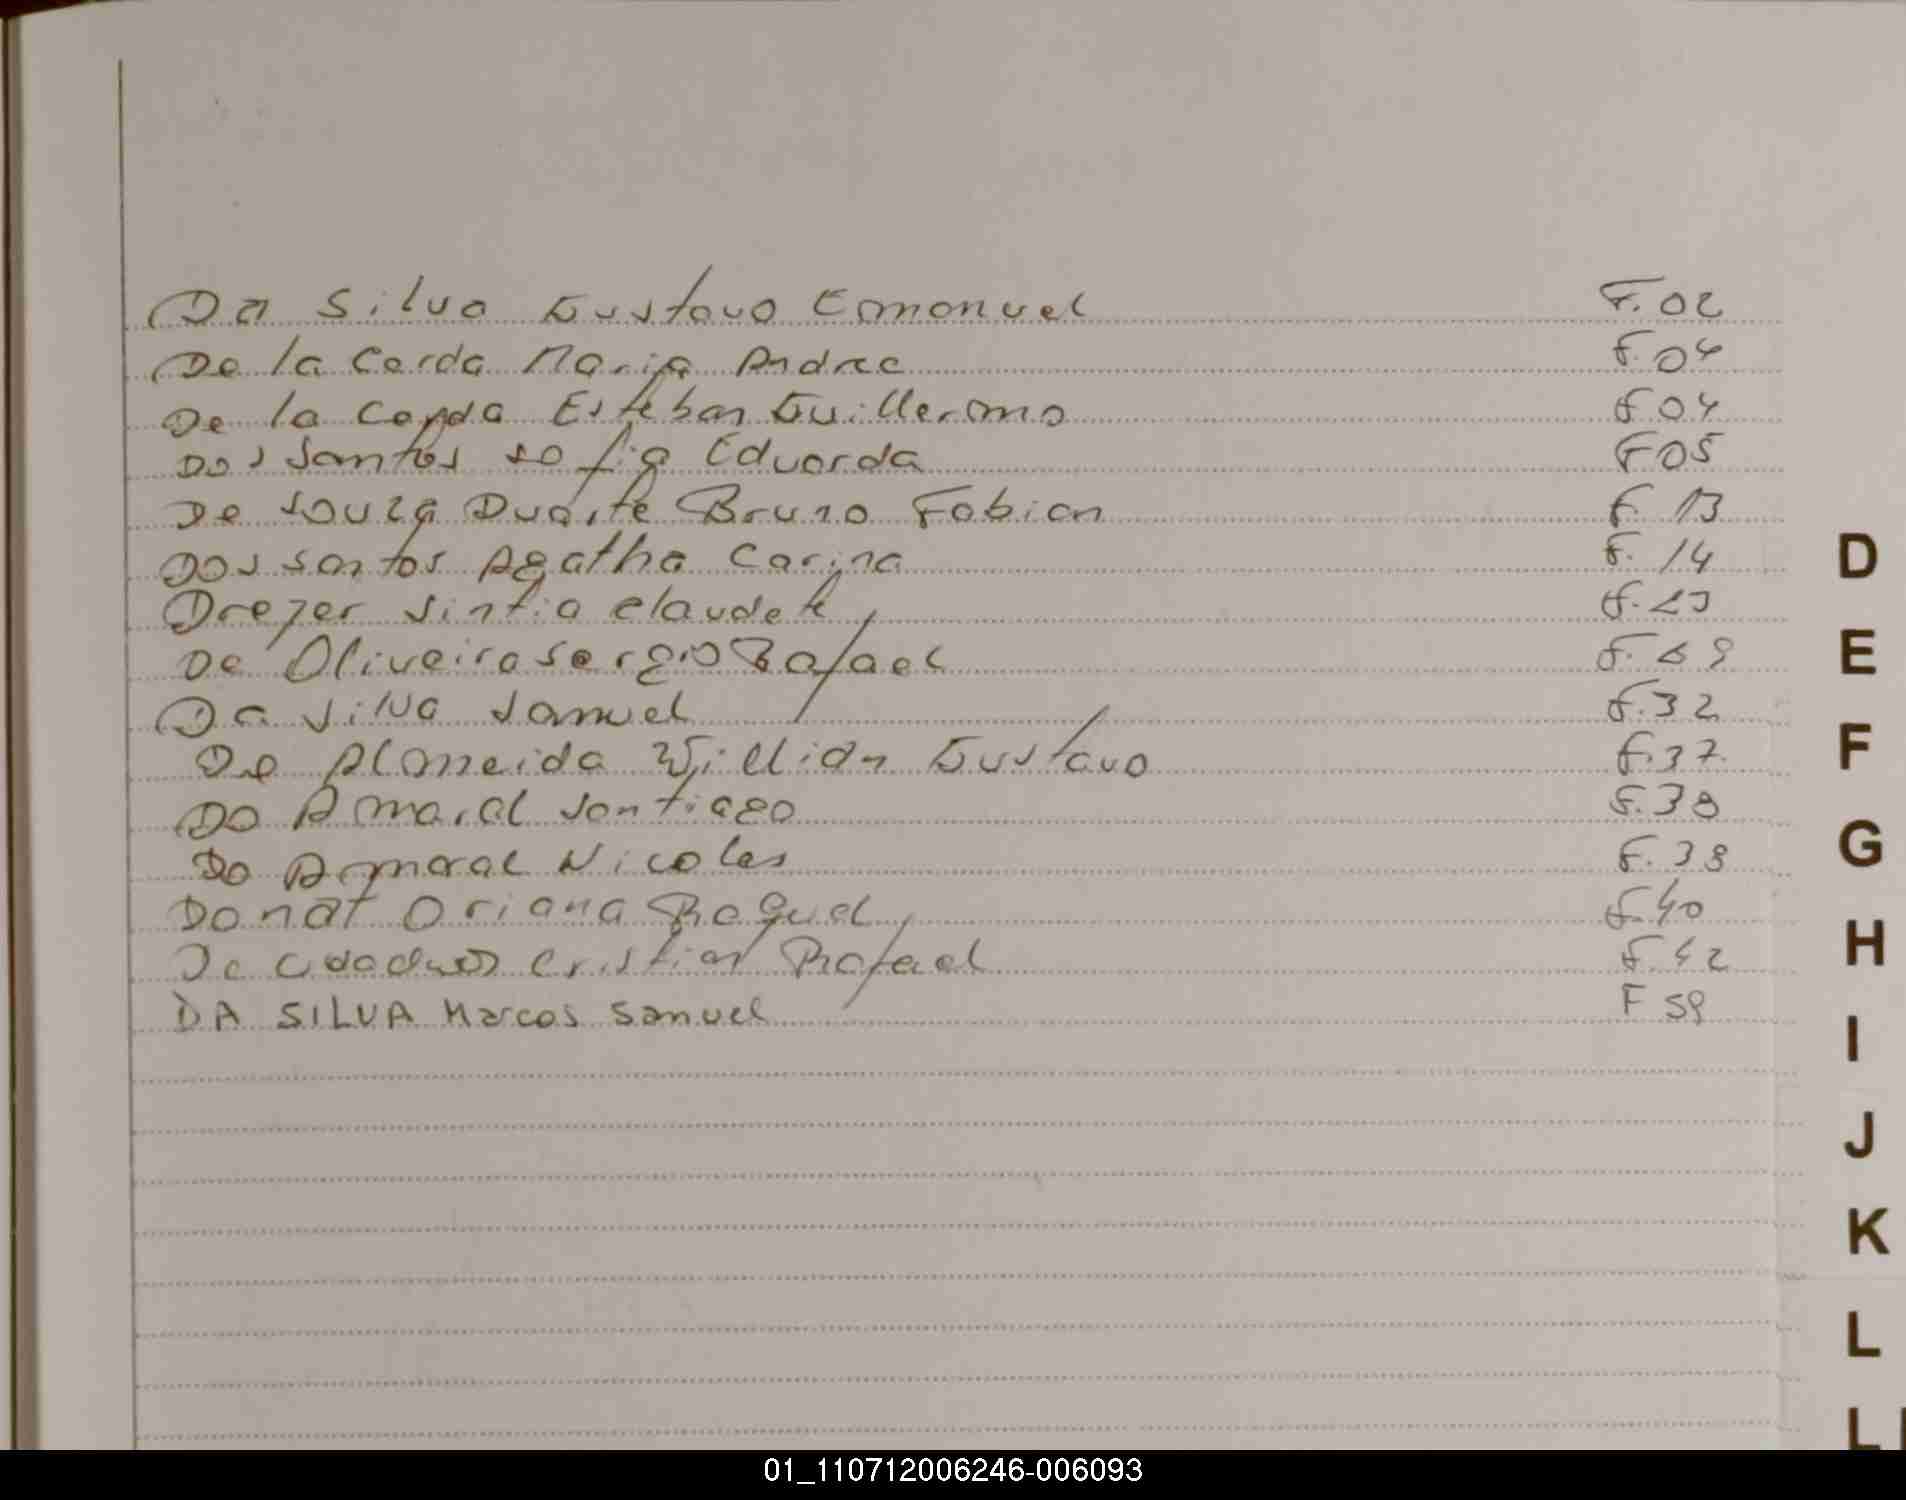 Da Silva Gustavo Emanuel F. 02
De la Cerda Maria Andree F. 04
De la Cerda Esteban Guillermo F 04
Dos Santos Sofia Eduarda F 05
De Souza Duarte Bruno Fabian F. 13
Dos Santos Agatha Carina F. 14
Drezer Sintia Claudete F. 23
De Oliveira Sergio Rafael F.
Da Silva Samuel F. 32
De Almeida Willian Gustavo F. 37
Do Amaral Santiago F. 38
Do Amaral Nicolas F. 38
Donat Oriana Raquel F. 40
Cristian Rafael F. 42
DA SILVA Marcos Samuel F 59
D
E
F
G
H
I
J
K
L
01_110712006246-006093